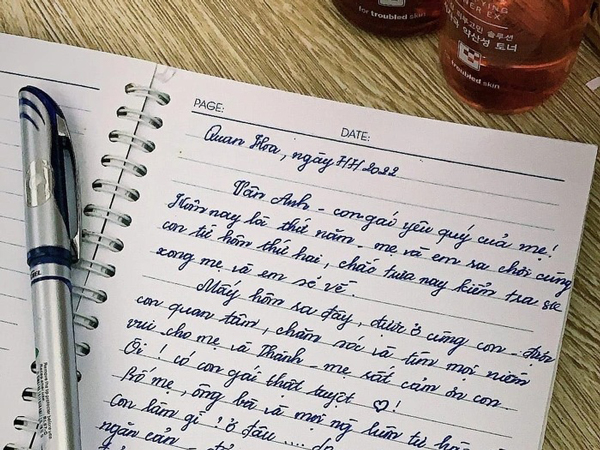 for troubled skin
ER EX
약산성 토너
troubled skin
PAGE:
DATE:
Quan Hoa, ngày 7/7/2022
Vân Anh - con gái yêu quý của mẹ!
Hôm nay là thứ năm - mẹ và em ra chơi cùng
con từ hôm thứ hai, cháo trưa nay kiểm tra sk
xong mẹ và em sẽ về.
Mấy hôm ra đây, được ở cùng con - được
con quan tâm, chăm sóc và tìm mọi niềm
vui cho mẹ và Thành - mẹ rất cảm ơn con
Ôi! có con gái thật tuyệt ♡!
Bố mẹ, ông bà và mọi ng luôn tự hào
Con làm gì! ở đâu ....
ngăn cản -